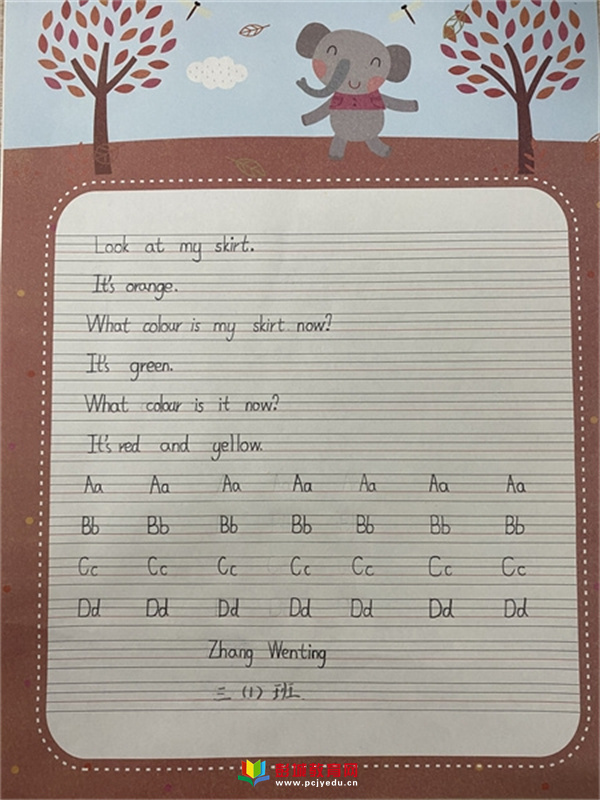 Look at my skirt.
It's orange.
What colour is my skirt now?
It's green.
What colour is it now?
It's red and yellow.
Aa Aa Aa Aa Aa Aa Aa
Bb Bb Bb Bb Bb Bb Bb
Cc Cc Cc Cc Cc Cc Cc
Dd Dd Dd Dd Dd Dd Dd
Zhang Wenting
三（1）班
www.pcjyedu.cn